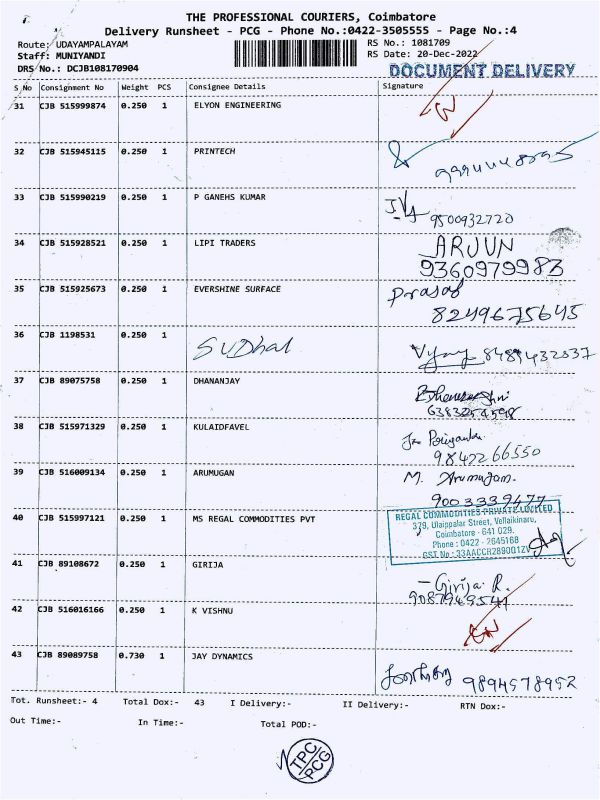 THE PROFESSIONAL COURIERS, Coimbatore
Delivery Runsheet - PCG - Phone No.:0422-3505555 - Page No.:4
Route: UDAYAMPALAYAM RS No.: 1081709
Staff: MUNIYANDI RS Date: 20-Dec-2022
DRS No.: DCJB108170904 DOCUMENT DELIVERY
S No Consignment No Weight PCS Consignee Details Signature
31 CJB 515999874 0.250 1 ELYON ENGINEERING
32 CJB 515945115 0.250 1 PRINTECH
33 CJB 515990219 0.250 1 P GANEHS KUMAR
9500932720
34 CJB 515928521 0.250 1 LIPI TRADERS ARJUN
9360979983
35 CJB 515925673 0.250 1 EVERSHINE SURFACE
8249675645
36 CJB 1198531 0.250 1
37 CJB 89075758 0.250 1 DHANANJAY
38 CJB 515971329 0.250 1 KULAIDFAVEL
9842266550
39 CJB 516009134 0.250 1 ARUMUGAN M. Arumugam.
9003339477
40 CJB 515997121 0.250 1 MS REGAL COMMODITIES PVT
REGAL COMMODITIES PRIVATE LIMITED
379, Ulaippalar Street, Vellaikinaru,
Coimbatore - 641 029.
Phone : 0422 - 2645168
GST No : 33AACCR2890Q1ZV
41 CJB 89108672 0.250 1 GIRIJA
- Girija. R.
42 CJB 516016166 0.250 1 K VISHNU
43 CJB 89089758 0.730 1 JAY DYNAMICS
9894578952
Tot. Runsheet:- 4 Total Dox:- 43 I Delivery:- II Delivery:- RTN Dox:-
Out Time:- In Time:- Total POD:-
TPC
PCG